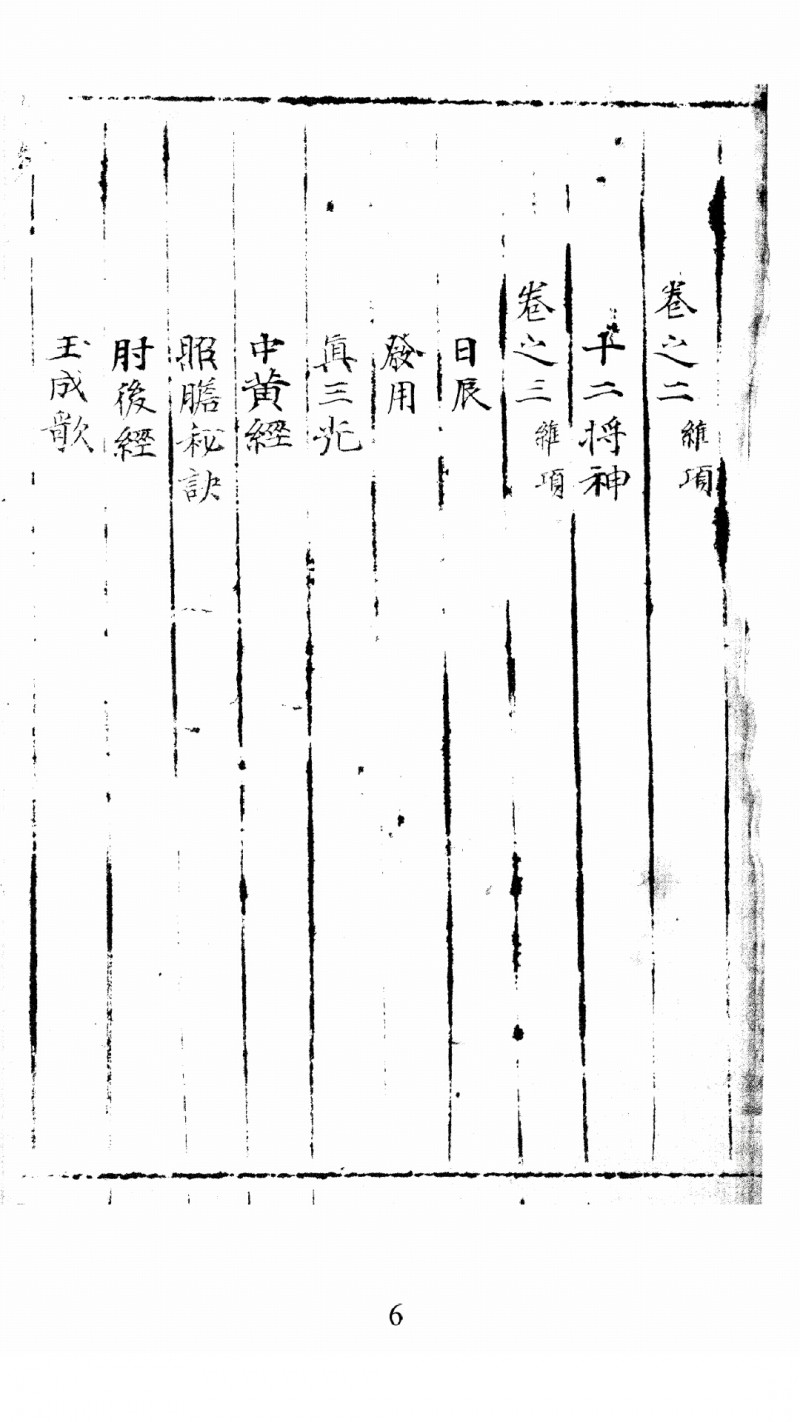 卷之二 維項
十二將神
卷之三 維項
日辰
發用
真三光
中黃經
照膽秘訣
肘後經
玉成歌
6